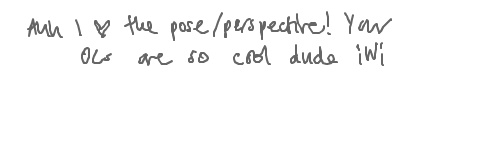 Ahh I ♥ the pose/perspective! Your
OCs are so cool dude iWi